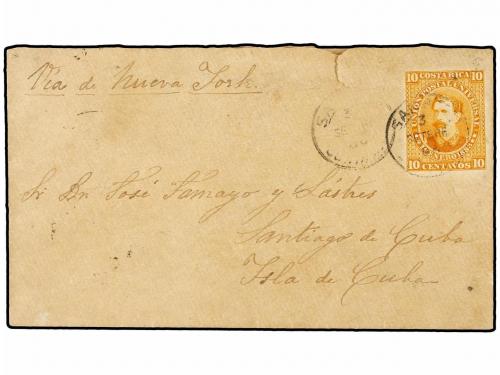 Via de Nueva York.
10 COSTA RICA 10
UNION POSTAL UNIVERSAL
ENERO 1883
10 CENTAVOS 10
SA
3
Sr. Dn. José Tamayo y Lastres
Santiago de Cuba
Isla de Cuba